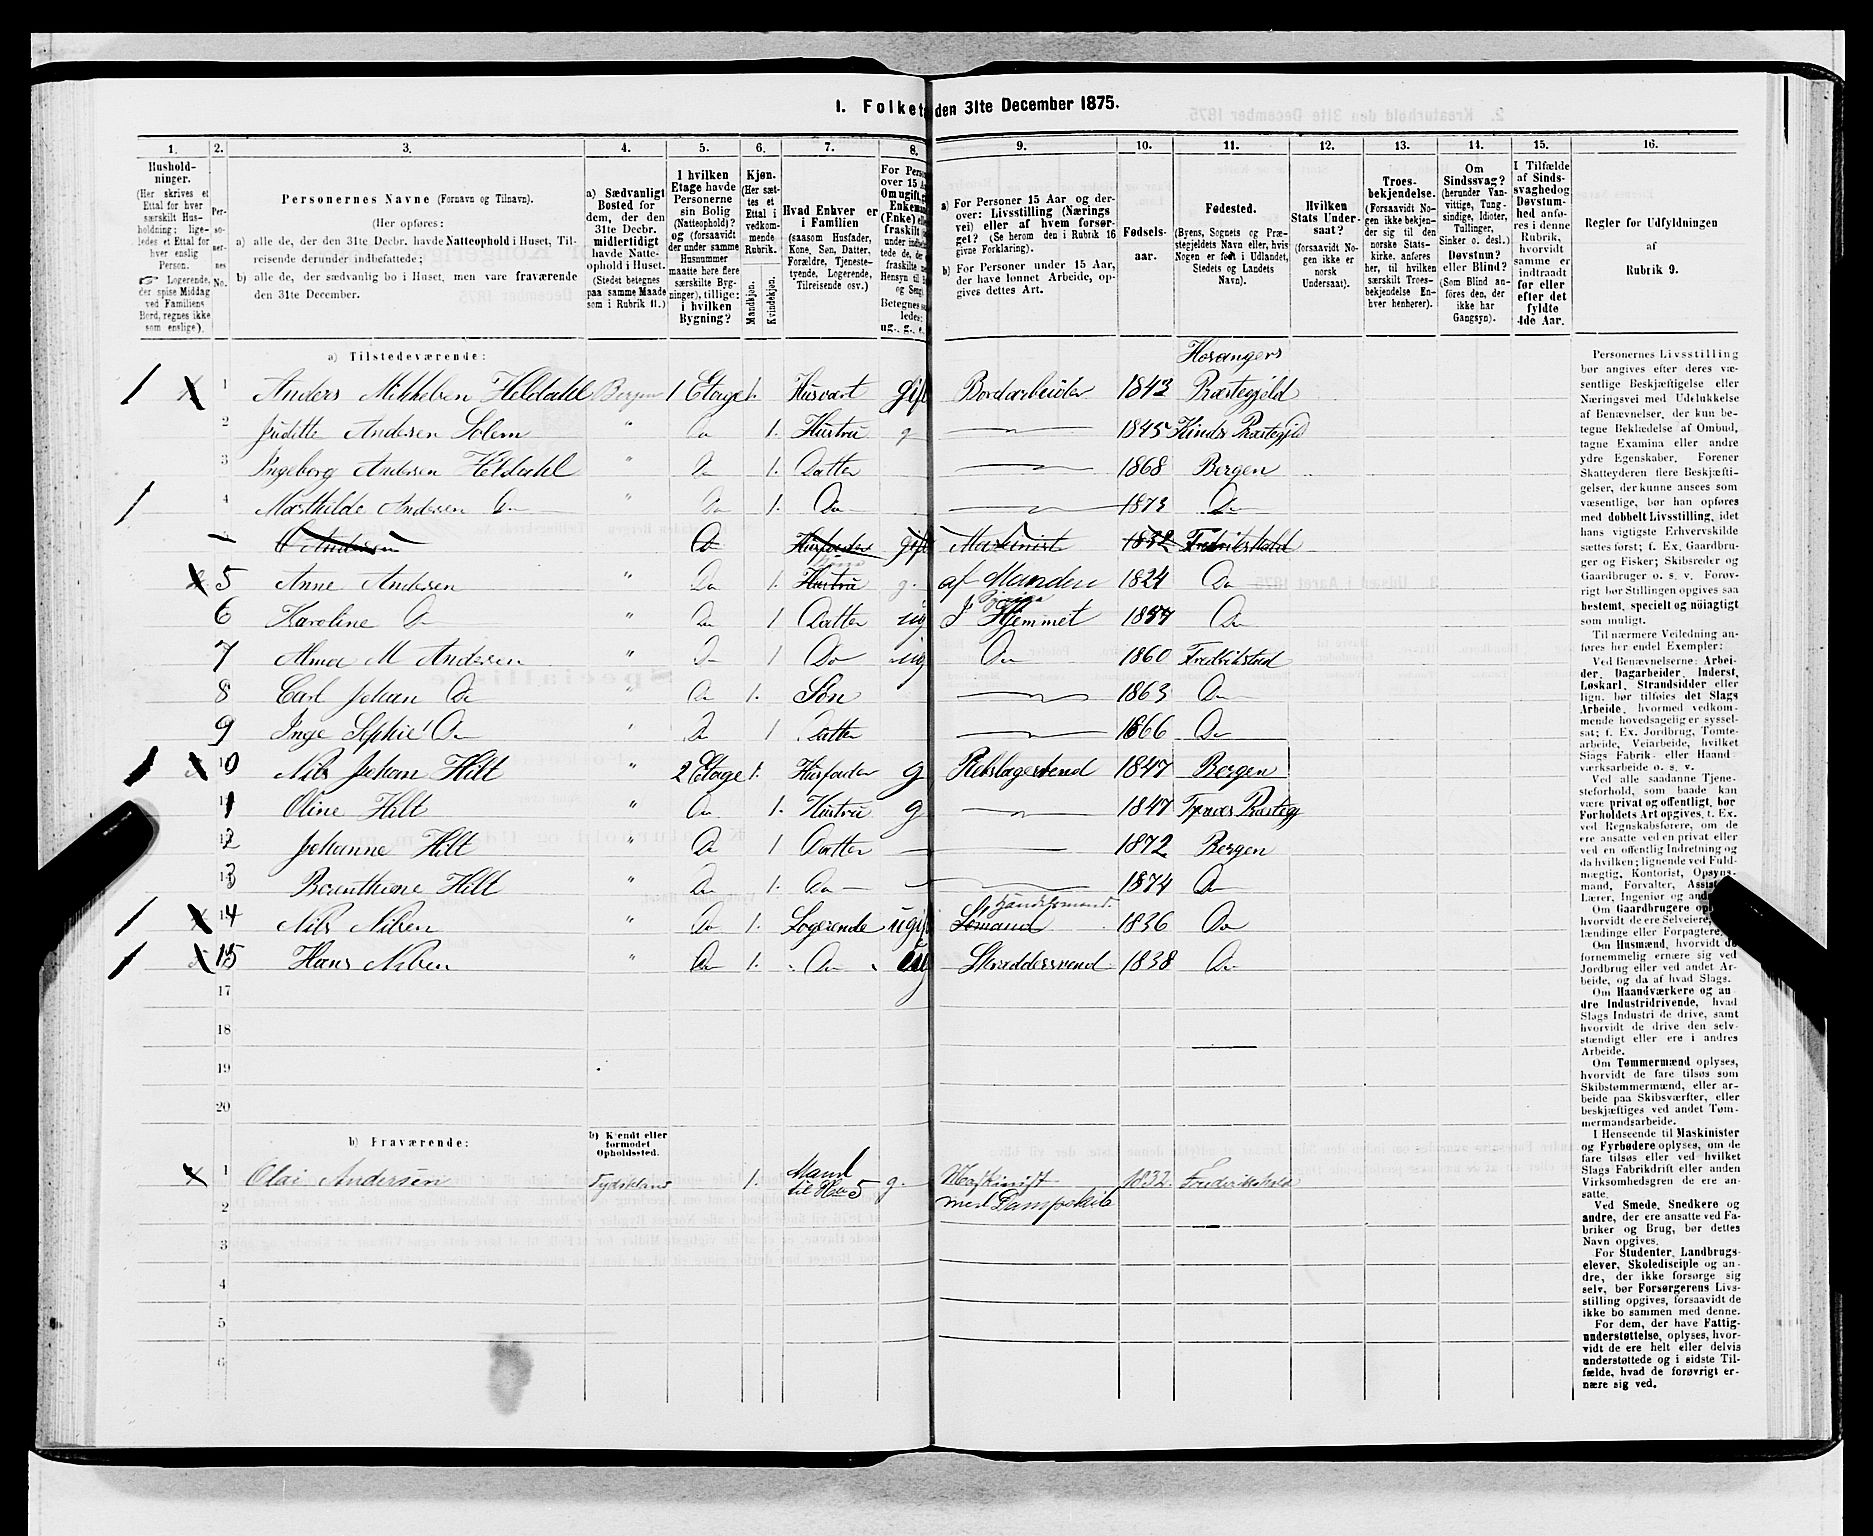 1. Folket den 31te December 1875.
1. 2. 3. 4. 5. 6. 7. 8. 9. 10. 11. 12. 13. 14. 15. 16.
Hushold-
ninger.
(Her skrives et
Ettal for hver
særskilt Hus-
holdning; lige-
ledes et Ettal for
hver enslig
Person.
Logerende,
der spise Middag
ved Familiens
Bord, regnes ikke
som enslige).
Per-
so-
ner-
nes
No.
Personernes Navne (Fornavn og Tilnavn).
(Her opføres:
a) alle de, der den 31te Decbr. havde Natteophold i Huset, Til-
reisende derunder indbefattede;
b) alle de, der sædvanlig bo i Huset, men vare fraværende
den 31te December.
a) Sædvanligt
Bosted for
dem, der den
31te Decbr.
midlertidigt
havde Natte-
ophold i Huset.
(Stedet betegnes
paa samme Maade
som i Rubrik 11.)
I hvilken
Etage havde
Personerne
sin Bolig
(Natteophold)?
og (forsaavidt
der under samme
Husnummer
maatte høre flere
særskilte Byg-
ninger), tillige:
i hvilken
Bygning?
Kjøn.
(Her sæt-
tes et
Ettal i
vedkom-
mende
Rubrik.
Mandkjøn.
Kvindekjøn.
Hvad Enhver er
i Familien
(saasom Husfader,
Kone, Søn, Datter,
Forældre, Tjeneste-
tyende, Logerende,
Tilreisende osv.)
For Person
over 15 Aa
Om ugift, g
Enkeman
(Enke) elle
fraskilt
a) For Personer 15 Aar og der-
over: Livsstilling (Nærings
vei) eller af hvem forsør-
get? (Se herom den i Rubrik 16
givne Forklaring).
b) For Personer under 15 Aar,
der have lønnet Arbeide, op-
gives dettes Art.
Fødsels-
aar.
Fødested.
(Byens, Sognets og Præ-
stegjeldets Navn eller, hvis
Nogen er født i Udlandet,
Stedets og Landets
Navn).
Hvilken
Stats Under-
saat?
(forsaavidt No-
gen ikke er
norsk
Undersaat).
Troes-
bekjendelse.
(Forsaavidt No-
gen ikke bekjen-
der sig til den
norske Stats-
kirke, anføres
her, til hvilken
særskilt Troes-
bekjendelse En-
hver henhører).
Om
Sindssvag?
(herunder Van-
vittige, Tung-
sindige, Idioter,
Tullinger,
Sinker o. desl.)
Døvstum?
eller Blind?
(Som Blind an-
føres den, der
ikke har
Gangsyn).
I Tilfælde
af Sinds-
svaghed og
Døvstum-
hed anfø-
res i denne
Rubrik,
hvorvidt
samme er
indtraadt
før eller
efter det
fyldte
4de Aar.
Regler for Udfyldningen
af
Rubrik 9.
a) Tilstedeværende:
1 Anders Mikkelsen Heldahl Bergen 1 Etage 1. Husvært gift Bordarbeider 1843 Hosangers Præstegjeld
2 Juditte Andersen Solem " Do 1. Hustru g 1845 Kinds Præstegjld
3 Ingeborg Andersen Heldahl " Do 1. Datter 1868 Bergen
4 Mathilde Andersen Do " Do 1. Do 1873 Do
O Andersen Do Husfader gift Maskinist 1832 Fredrikshald
5 Anne Andersen " Do 1. Hustru g. af Manden 1824 Do
6 Karoline Do " Do 1 Datter ug I Hjemmet 1857 Do
7 Alma M Andersen " Do 1 Do ug Do 1860 Fredrikstad
8 Carl Johan Do " Do 1. Søn 1863 Do
9 Inge Sophie Do " Do 1 Datter 1866 Do
10 Nils Johan Hilt " 2 Etage 1. Husfader g Rebslagersvend 1847 Bergen
11 Oline Hilt " Do 1. Hustru g 1847
12 Johanne Hilt " Do 1 Datter 1872 Bergen
13 Berenthine Hilt " Do 1. Do 1874 Do
14 Nils Nilsen " Do 1. Logerende ugift Sømand 1836 Do
15 Hans Nilsen " Do 1. Do ug Skræddersvend 1838 Do
17
18
19
20
b) Fraværende:
b) Kjendt eller
formodet
Opholdssted.
1 Olai Andersen Tydskland 1. Mand
til No 5 g. Maskinist
med Dampskib 1832. Frederikshald
2
3
4
5
6
Personernes Livsstilling
bør angives efter deres væ-
sentlige Beskjæftigelse eller
Næringsvei med Udelukkelse
af Benævnelser, der kun be-
tegne Beklædelse af Ombud,
tagne Examina eller andre
ydre Egenskaber. Forener
Skatteyderen flere Beskjæfti-
gelser, der kunne ansees som
væsentlige, bør han opføres
med dobbelt Livsstilling, idet
hans vigtigste Erhvervskilde
sættes først; f. Ex. Gaardbru-
ger og Fisker; Skibsreder og
Gaardbruger o. s. v. Forøv-
rigt bør Stillingen opgives saa
bestemt, specielt og nøiagtigt
som muligt.
Til nærmere Veiledning an-
føres her endel Exempler:
Ved Benævnelserne: Arbei-
der, Dagarbeider, Inderst,
Løskarl, Strandsidder eller
lign. bør tilføies det Slags
Arbeide, hvormed vedkom-
mende hovedsagelig er syssel-
sat; f. Ex. Jordbrug, Tomte-
arbeide, Veiarbeide, hvilket
Slags Fabrik- eller Haand-
værksarbeide o. s. v.
Ved alle saadanne Tjene-
steforhold, som baade kan
være privat og offentligt, bør
Forholdets Art opgives, t. Ex.
ved Regnskabsførere, om de
ere ansatte ved en privat eller
ved en offentlig Indretning og
da hvilken; lignende ved Fuld-
mægtig, Kontorist, Opsyns-
mand, Forvalter,
Lærer, Ingeniør og
Om Gaardbrugere
hvorvidt de ere Selveiere,
lændinge eller Forpagtere.
Om Husmænd, hvorvidt de
fornemmelig ernære sig ved
Jordbrug eller ved andet Ar-
beide, og da af hvad Slags.
Om Haandværkere og an
dre Industridrivende, hvad
Slags Industri de drive, samt
hvorvidt de drive den selv-
stændigt eller ere i andres
Arbeide.
Om Tømmermænd oplyses,
hvorvidt de fare tilsøs som
Skibstømmermænd, eller ar-
beide paa Skibsværfter, eller
beskjæftiges ved andet Tøm-
mermandsarbeide.
I Henseende til Maskinister
og Fyrbødere oplyses, om de
fare tilsøs eller ved hvilket
Slags Fabrikdrift eller anden
Virksomhedsgren de ere an-
satte.
Ved Smede, Snedkere og
andre, der ere ansatte ved Fa-
briker og Brug, bør dettes
Navn opgives.
For Studenter, Landbrugs-
elever, Skoledisciple og an-
dre, der ikke forsørge sig
selv, bør Forsørgerens Livs-
stilling opgives, forsaavidt de
ikke bo sammen med denne.
For dem, der have Fattig-
understøttelse, oplyses, hvor-
vidt de ere helt eller delvis
understøttede og i sidste Til-
fælde, hvad de forøvrigt er-
nære sig ved.